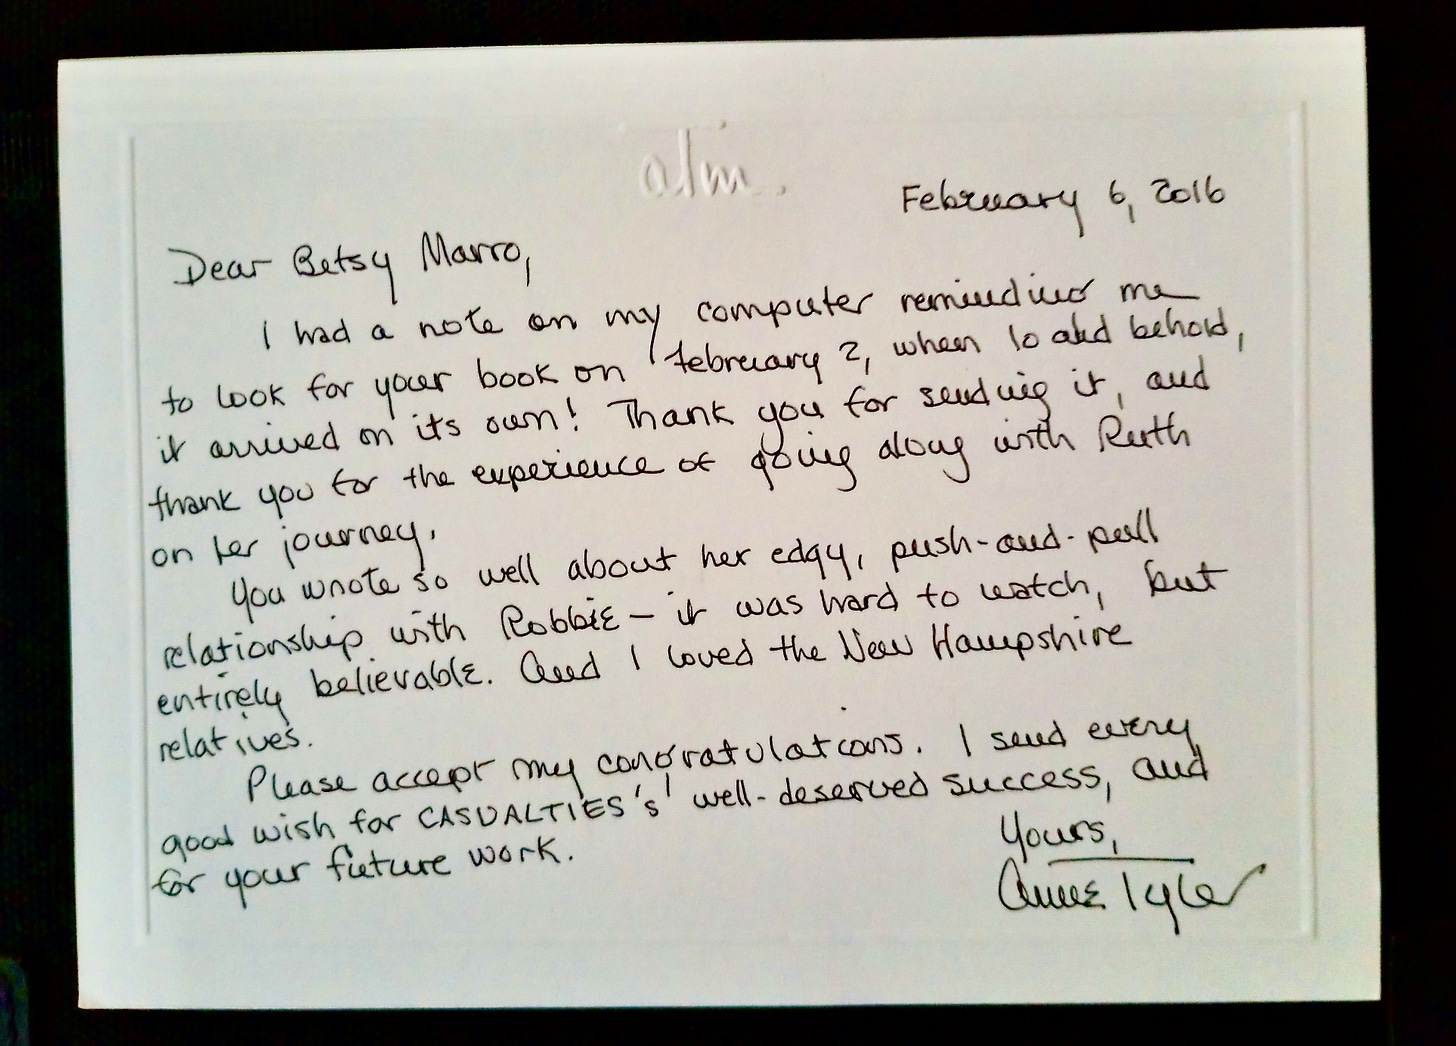 atm
February 6, 2016
Dear Betsy Marro,
I had a note on my computer reminding me
to look for your book on February 2, when lo and behold,
it arrived on its own! Thank you for sending it, and
thank you for the experience of going along with Ruth
on her journey.
You wrote so well about her edgy, push-and-pull
relationship with Robbie – it was hard to watch, but
entirely believable. And I loved the New Hampshire
relatives.
Please accept my congratulations. I send every
good wish for CASUALTIES's well-deserved success, and
for your future work.
Yours,
Anne Tyler